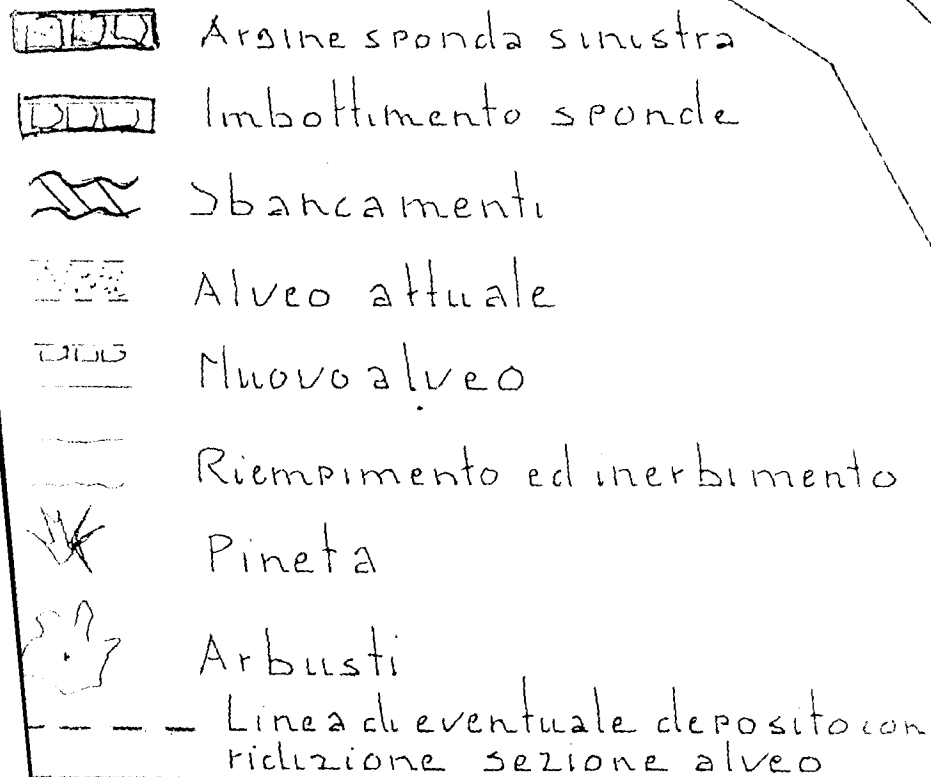 Argine sponda sinistra
Imbottimento sponde
Sbancamenti
Alveo attuale
Nuovo alveo
Riempimento ed inerbimento
Pineta
Arbusti
Linea di eventuale deposito con
riduzione sezione alveo